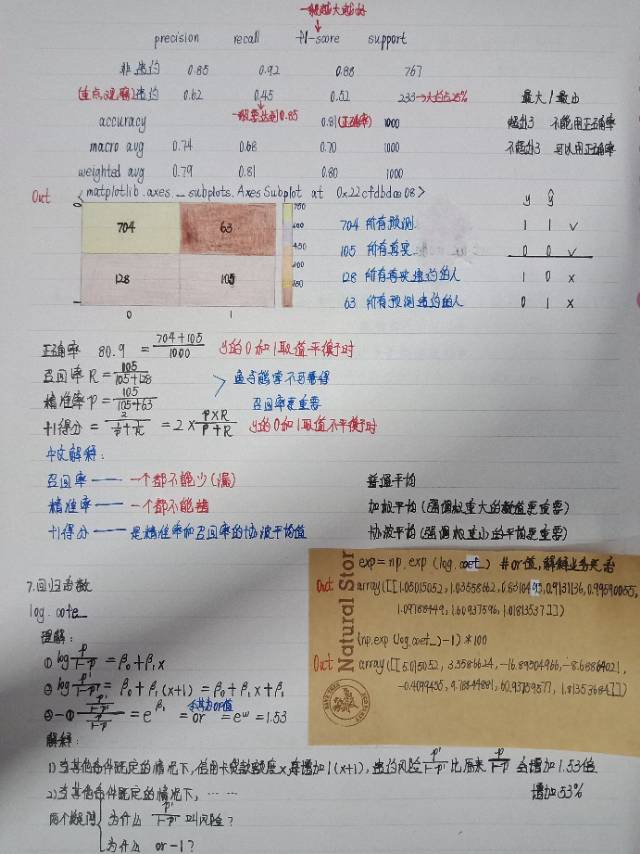 precision recall f1-score support
非违约 0.85 0.92 0.88 767
(重点观察)违约 0.62 0.45 0.52 233→大约占25%
一般要达到0.85
accuracy 0.81(正确率) 1000
macro avg 0.74 0.68 0.70 1000
weighted avg 0.79 0.81 0.80 1000
不能用正确率
可以用正确率
Out <matplotlib.axes._subplots.AxesSubplot at 0x22cfdbda08>
704 63
128 105
0 1
y ŷ
704 所有预测 1 1 ✓
105 所有真实 0 0 ✓
128 所有真实违约的人 1 0 ×
63 所有预测违约的人 0 1 ×
正确率 80.9 = (704+105)/1000 y的0和1取值平衡时
召回率 R = 105/(105+128) 鱼与熊掌不可兼得
精准率 P = 105/(105+63) 召回率更重要
f1得分 = 2/(1/P+1/R) = 2×(P×R)/(P+R) y的0和1取值不平衡时
中文解释:
召回率 —— 一个都不能少(漏) 普通平均
精准率 —— 一个都不能错 加权平均(强调权重大的数值更重要)
f1得分 —— 是精准率和召回率的协波平均值 协波平均(强调权重小的平均更重要)
exp=np.exp(log.coef_) #or值,解释业务
Out array([[1.05015052, 1.03358662,
1.09788449, 1.60937596, 1.01813537]])
(np.exp(log.coef_)-1)*100
Out array([[5.015052, 3.3586624, -16.89504966, -8.68864021,
1.8135368]])
Natural Stor
7.回归函数
log.coef_
理解:
① log p/(1-p) = β₀+β₁x
② log p'/(1-p') = β₀+β₁(x+1) = β₀+β₁x+β₁
②-① (p'/(1-p'))/(p/(1-p)) = e^β₁ = or = e^w = 1.53
解释:
1) 当其他条件既定的情况下,信用卡贷款额度x每增加1(x+1),违约风险p'/(1-p')比原来p/(1-p)会增加1.53倍
增加53%
2) 当其他条件既定的情况下,……
两个疑问 为什么 p'/(1-p') 叫风险?
为什么 or-1?